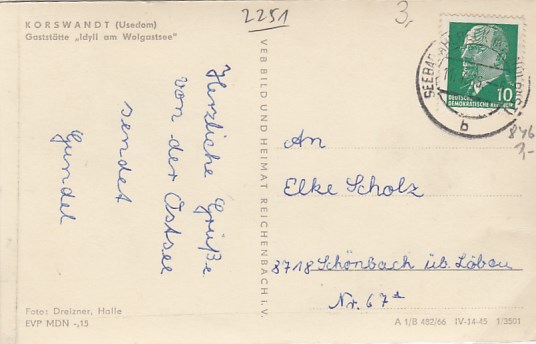 KORSWANDT (Usedom)
Gaststätte „Idyll am Wolgastsee"
2251
3,
Herzliche Grüße
von der Ostsee
sendet
Gundel
VEB BILD UND HEIMAT REICHENBACH I. V.
SEEBAD
b
10
DEUTSCHE
DEMOKRATISCHE REPUBLIK
846
3,-
An
Elke Scholz
8718 Schönbach üb. Löbau
Nr. 67a
Foto: Dreizner, Halle
EVP MDN -,15
A 1/B 482/66 IV-14-45 1/3501